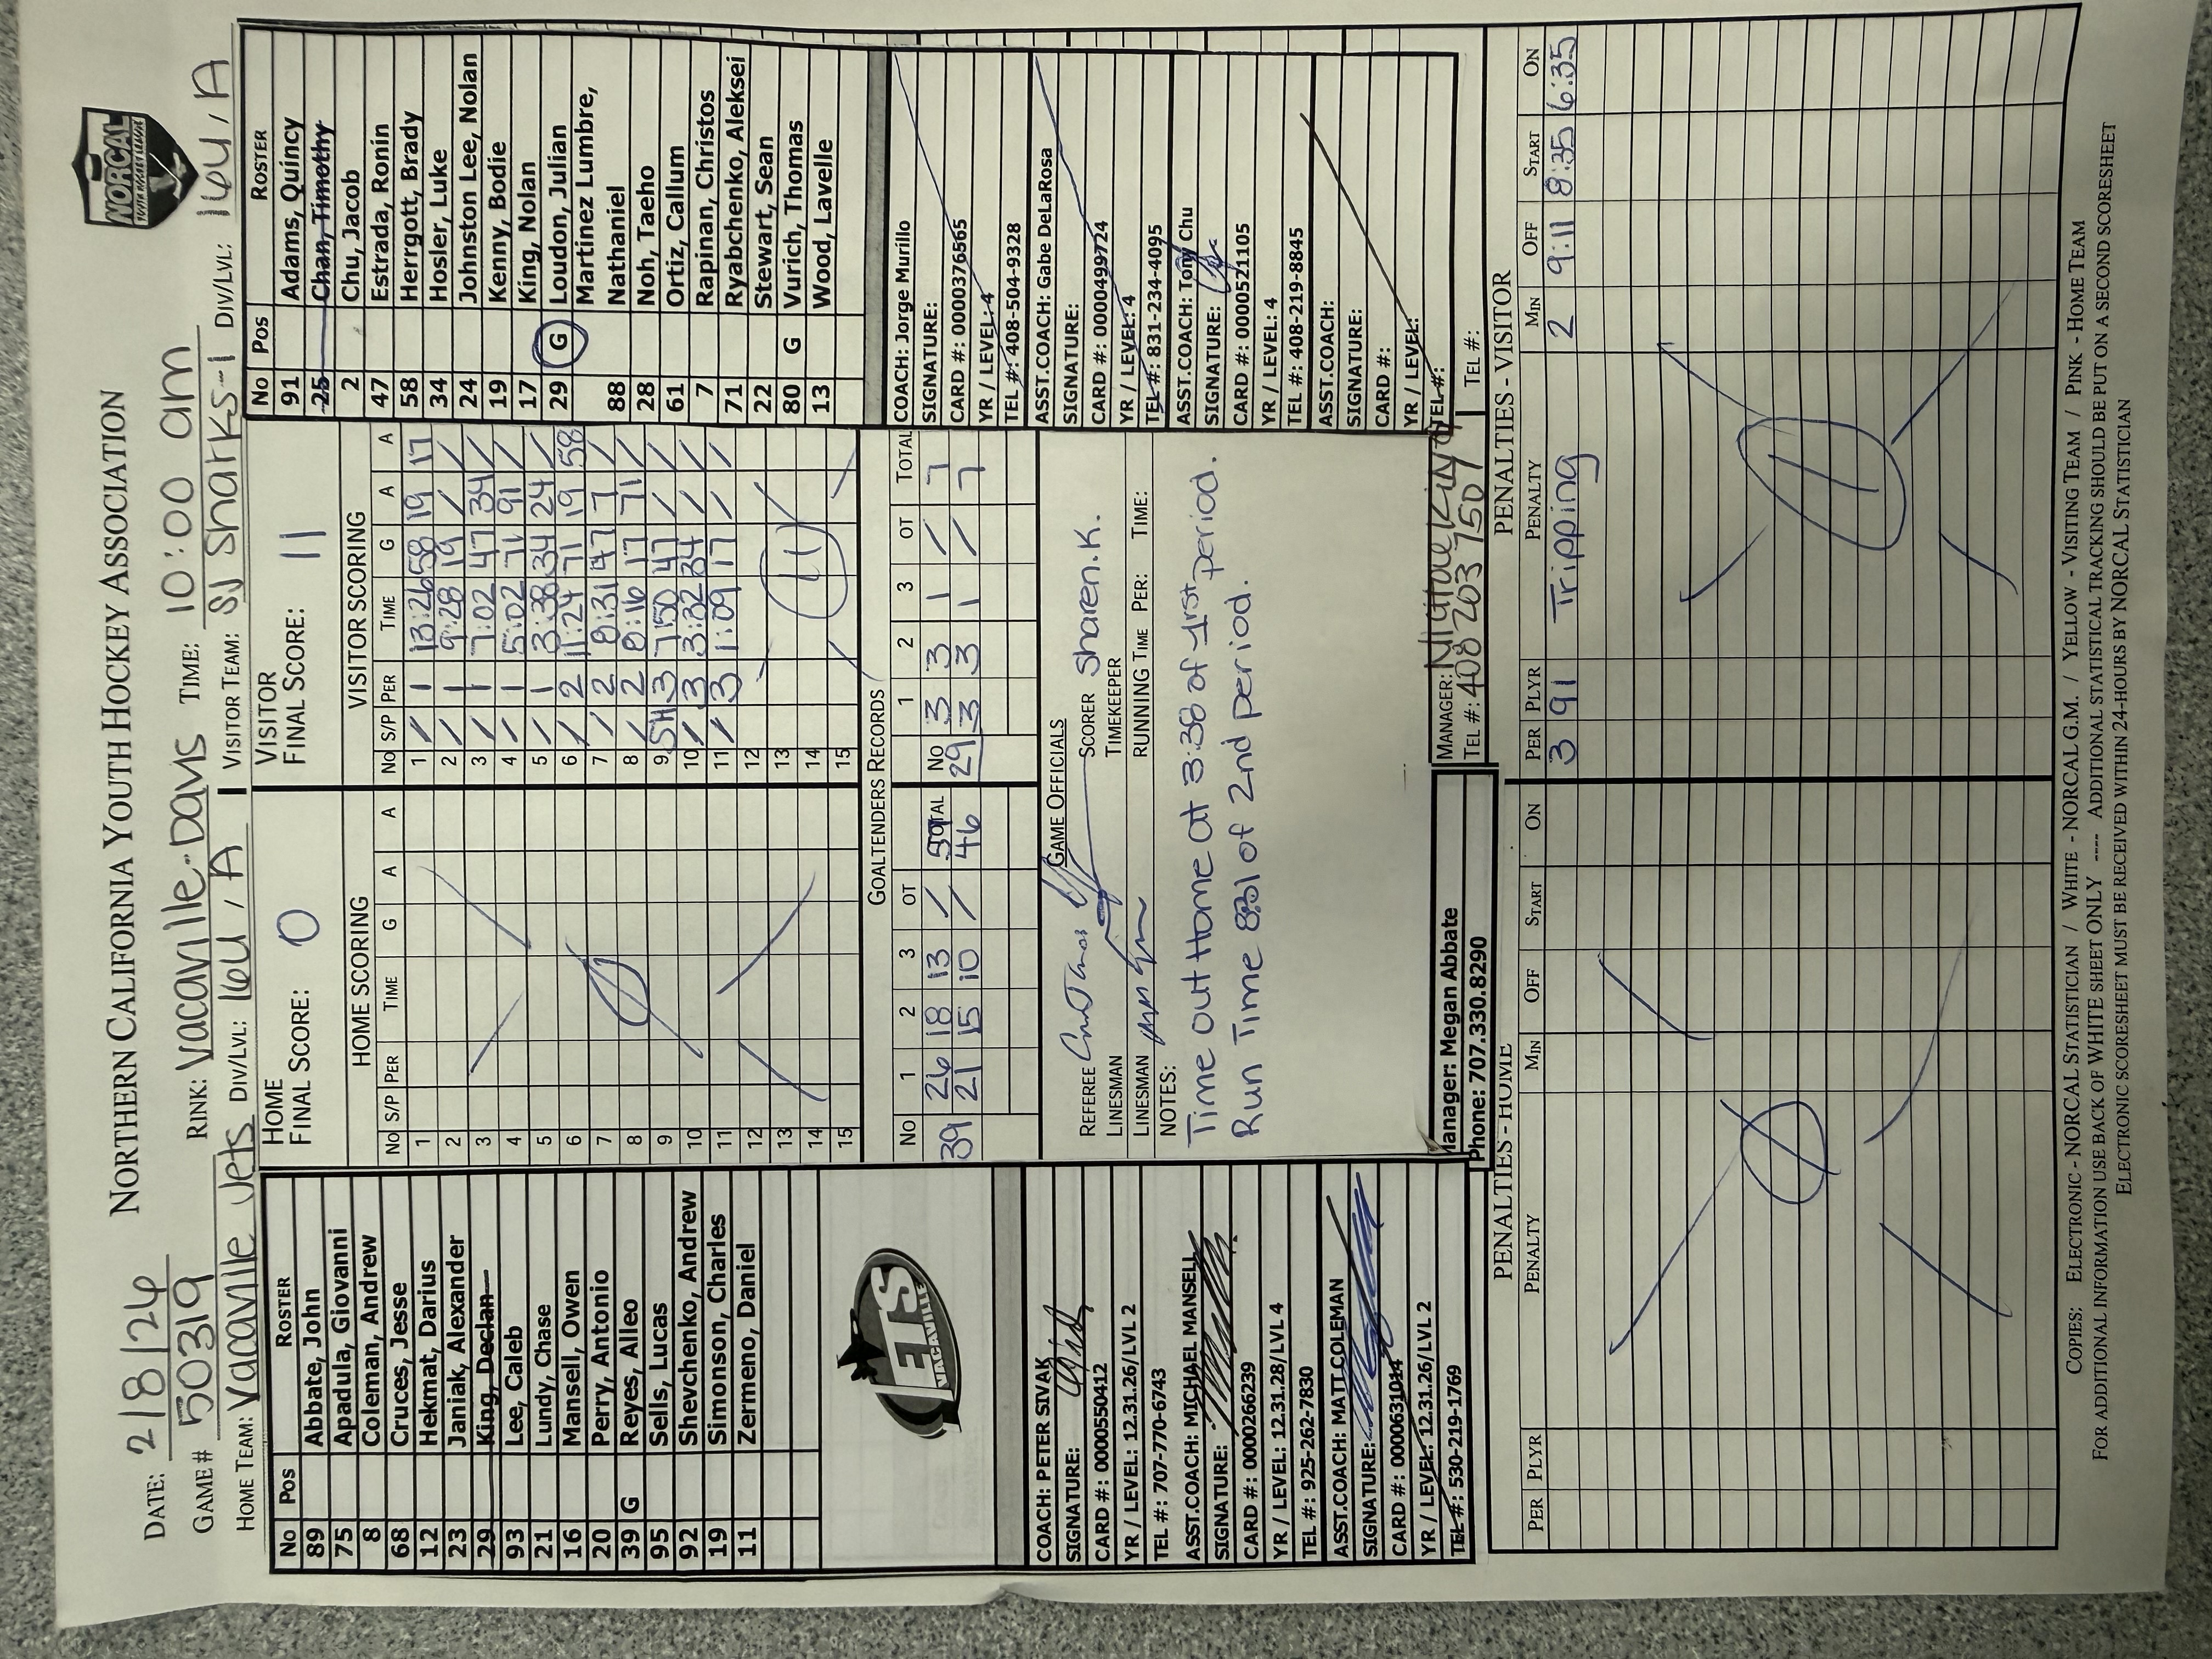 NORTHERN CALIFORNIA YOUTH HOCKEY ASSOCIATION
NORCAL
YOUTH HOCKEY LEAGUE
DATE: 2/8/26
GAME # 50319 RINK: Vacaville-Davis TIME: 10:00 am
HOME TEAM: Vacaville Jets DIV/LVL: 16U / A VISITOR TEAM: SJ Sharks-1 DIV/LVL: 16U / A
No Pos ROSTER
89 Abbate, John
75 Apadula, Giovanni
8 Coleman, Andrew
68 Cruces, Jesse
12 Hekmat, Darius
23 Janiak, Alexander
29 King, Declan
93 Lee, Caleb
21 Lundy, Chase
16 Mansell, Owen
20 Perry, Antonio
39 G Reyes, Alleo
95 Sells, Lucas
92 Shevchenko, Andrew
19 Simonson, Charles
11 Zermeno, Daniel
JETS
VACAVILLE
COACH: PETER SIVAK
SIGNATURE:
CARD #: 0000550412
YR / LEVEL: 12.31.26/LVL 2
TEL #: 707-770-6743
ASST.COACH: MICHAEL MANSELL
SIGNATURE:
CARD #: 0000266239
YR / LEVEL: 12.31.28/LVL 4
TEL #: 925-262-7830
ASST.COACH: MATT COLEMAN
SIGNATURE:
CARD #: 0000631014
YR / LEVEL: 12.31.26/LVL 2
TEL #: 530-219-1769
HOME
FINAL SCORE: 0
HOME SCORING
No S/P PER TIME G A A
1
2
3
4
5
6
7
8
9
10
11
12
13
14
15
VISITOR
FINAL SCORE: 11
VISITOR SCORING
No S/P PER TIME G A A
1 / 1 13:26 58 19 17
2 / 1 9:28 19 / /
3 / 1 7:02 47 34 /
4 / 1 5:02 71 91 /
5 / 1 3:38 34 24 /
6 / 2 11:24 71 19 58
7 / 2 8:31 47 7 /
8 / 2 8:16 17 71 /
9 SH 3 7:50 47 / /
10 / 3 3:32 34 / /
11 / 3 1:09 17 / /
12
13
14
15
11
GOALTENDERS RECORDS
No 1 2 3 OT TOTAL No 1 2 3 OT TOTAL
39 26 18 13 / 29 3 3 1 / 7
21 15 10 / 46 3 3 1 / 7
GAME OFFICIALS
REFEREE SCORER Sharen.K.
LINESMAN TIMEKEEPER
LINESMAN RUNNING TIME PER: TIME:
NOTES:
Time out Home at 3:38 of 1rst period.
Run Time 8:31 of 2nd period.
Manager: Megan Abbate
Phone: 707.330.8290
MANAGER:
TEL #: 408 203 7507
No Pos ROSTER
91 Adams, Quincy
25 Chan, Timothy
2 Chu, Jacob
47 Estrada, Ronin
58 Herrgott, Brady
34 Hosler, Luke
24 Johnston Lee, Nolan
19 Kenny, Bodie
17 King, Nolan
29 G Loudon, Julian
Martinez Lumbre,
88 Nathaniel
28 Noh, Taeho
61 Ortiz, Callum
7 Rapinan, Christos
71 Ryabchenko, Aleksei
22 Stewart, Sean
80 G Vurich, Thomas
13 Wood, Lavelle
COACH: Jorge Murillo
SIGNATURE:
CARD #: 0000376565
YR / LEVEL: 4
TEL #: 408-504-9328
ASST.COACH: Gabe DeLaRosa
SIGNATURE:
CARD #: 0000499724
YR / LEVEL: 4
TEL #: 831-234-4095
ASST.COACH: Tony Chu
SIGNATURE:
CARD #: 0000521105
YR / LEVEL: 4
TEL #: 408-219-8845
ASST.COACH:
SIGNATURE:
CARD #:
YR / LEVEL:
TEL #:
TEL #:
PENALTIES - HOME
PER PLYR PENALTY MIN OFF START ON
PENALTIES - VISITOR
PER PLYR PENALTY MIN OFF START ON
3 91 Tripping 2 9:11 8:35 6:35
1
COPIES: ELECTRONIC - NORCAL STATISTICIAN / WHITE - NORCAL G.M. / YELLOW - VISITING TEAM / PINK - HOME TEAM
FOR ADDITIONAL INFORMATION USE BACK OF WHITE SHEET ONLY ---- ADDITIONAL STATISTICAL TRACKING SHOULD BE PUT ON A SECOND SCORESHEET
ELECTRONIC SCORESHEET MUST BE RECEIVED WITHIN 24-HOURS BY NORCAL STATISTICIAN